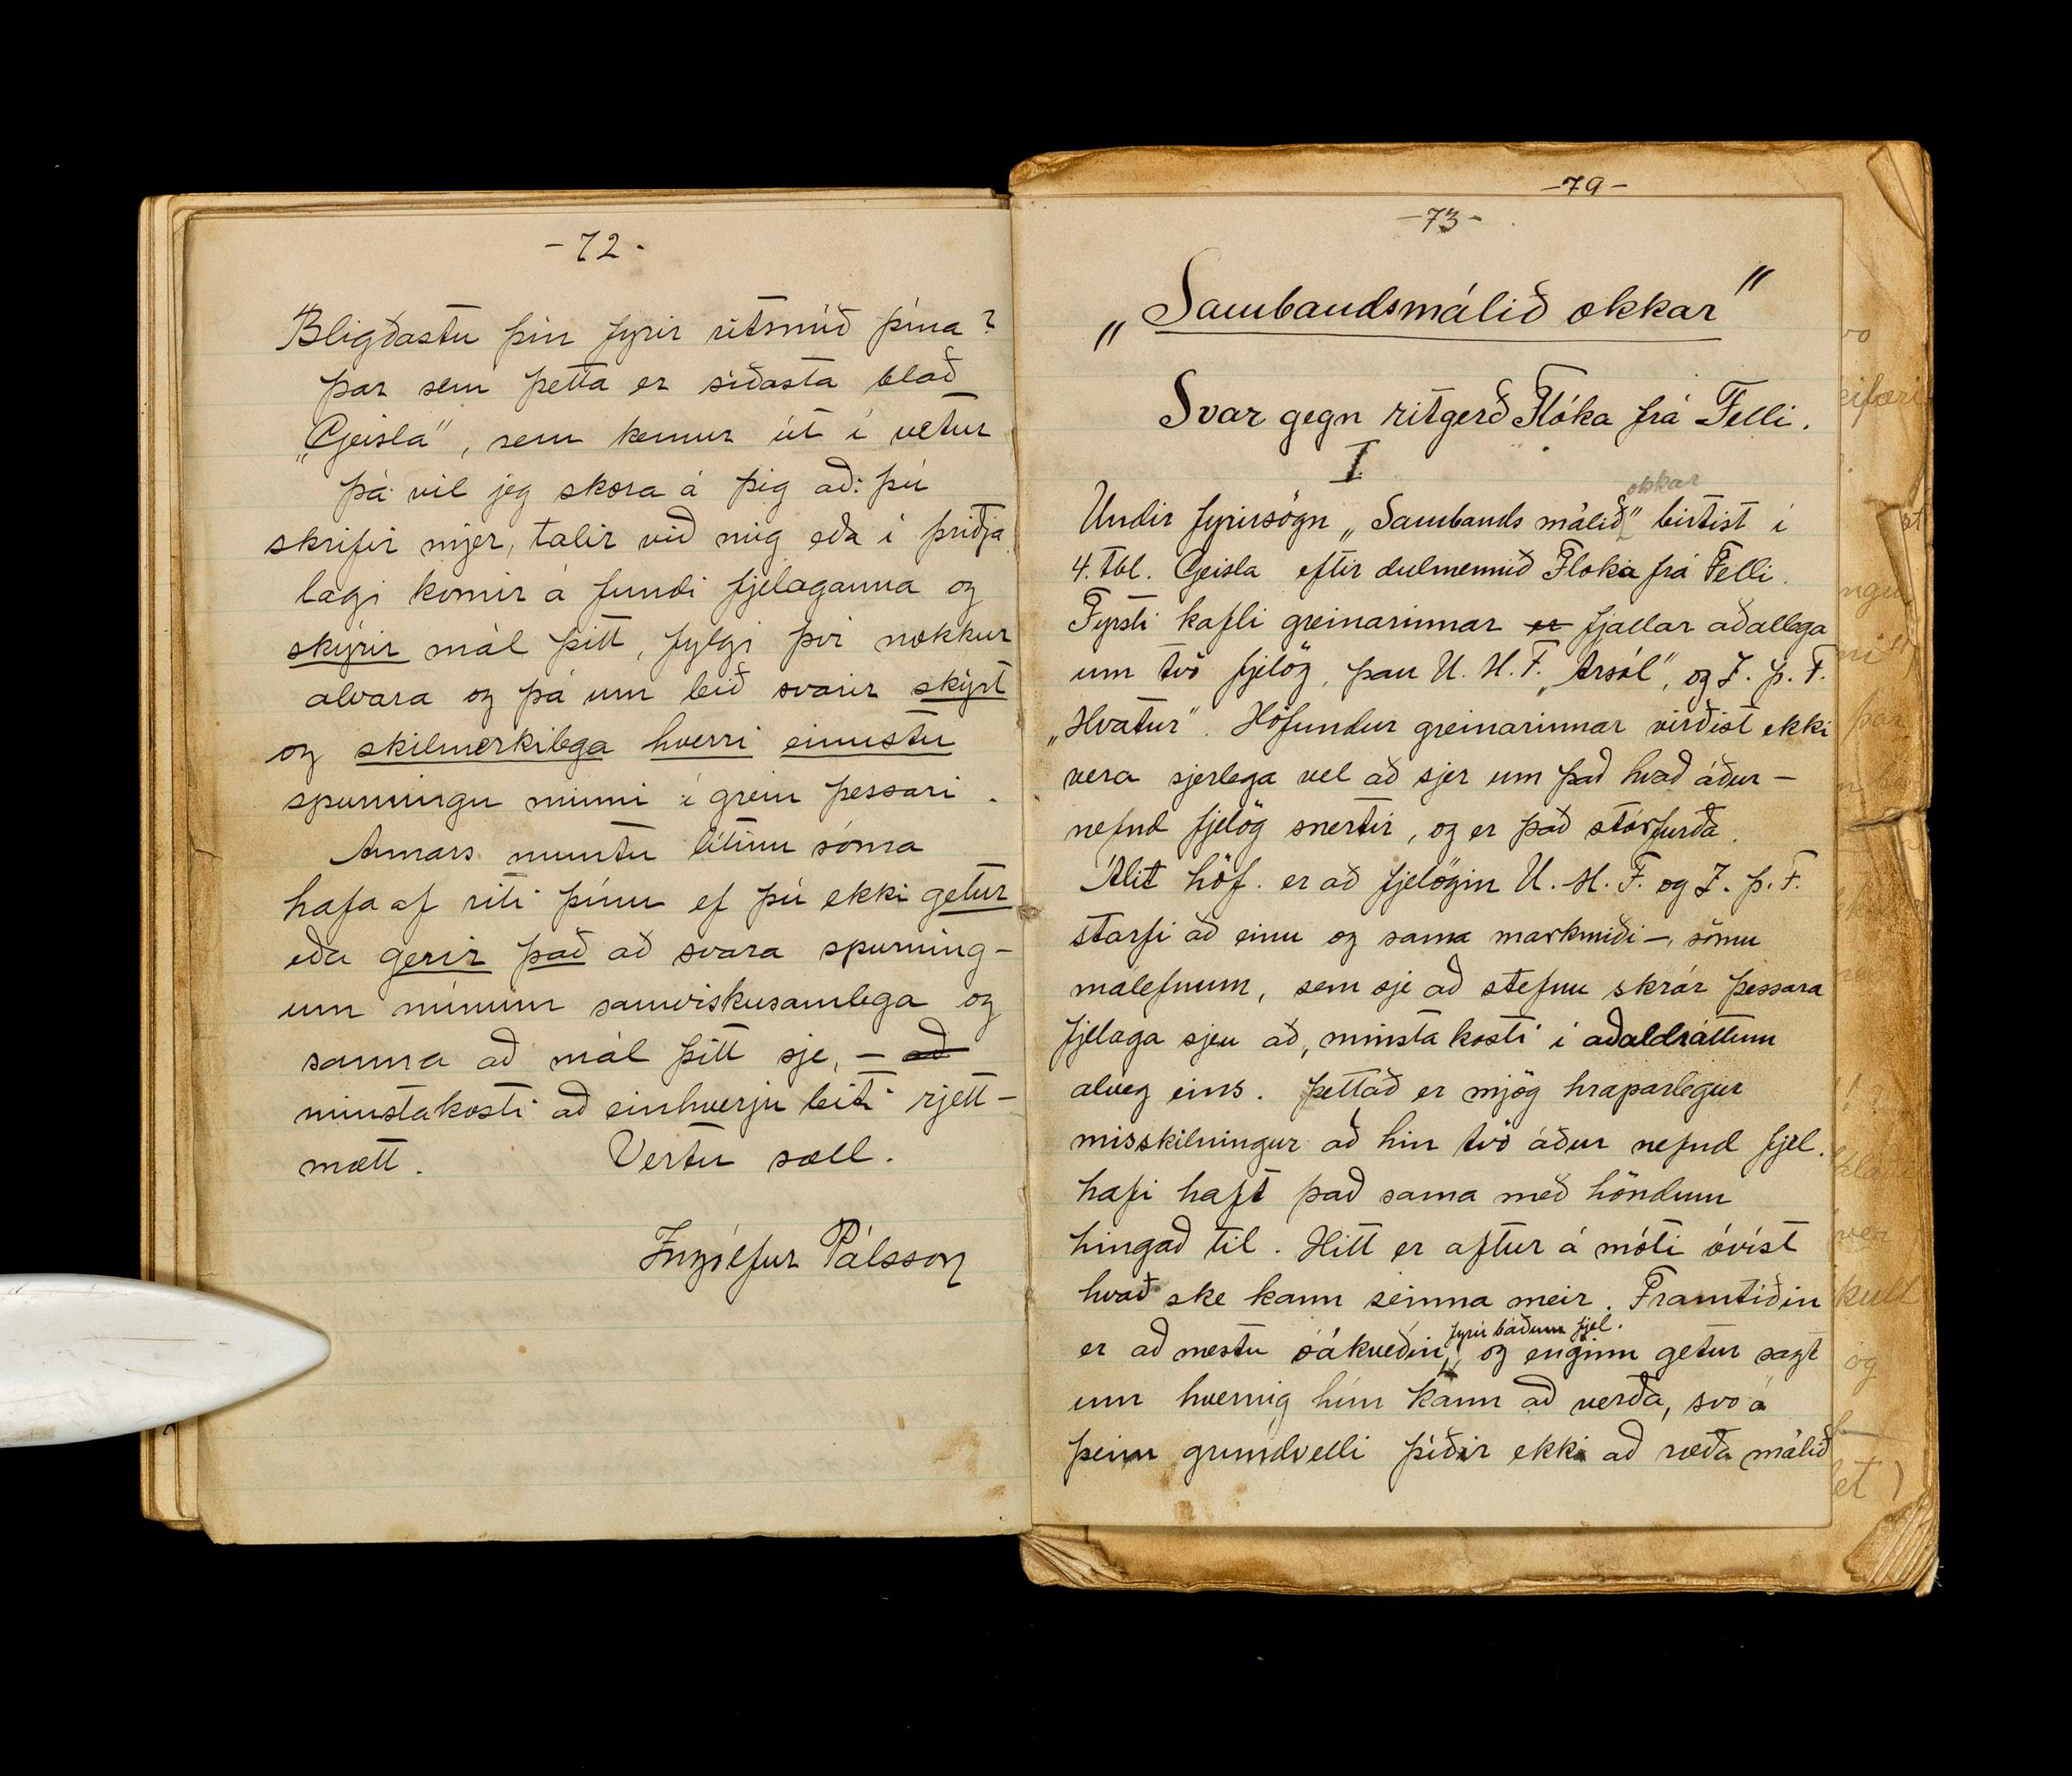 -72-
Bligðastu þín fyrir ritsmíð þína?
þar sem þetta er síðasta blað
„Geisla", sem kemur út í vetur
þá vil jeg skora á þig að: þú
skrifir mjer, talir við mig eða í þriðja
lagi komir á fundi fjelaganna og
skýrir mál þitt, fylgi því nokkur
alvara og þá um leið svarir skýrt
og skilmerkilega hverri einustu
spurningu minni í grein þessari.
Annars muntu lítinn sóma
hafa af riti þínu ef þú ekki getur
eða gerir það að svara spurning-
um mínum samviskusamlega og
sanna að mál þitt sje, - að
minstakosti að einhverju leiti rjett-
mætt. Vertu sæll.
Ingólfur Pálsson
-79-
-73-
„Sambandsmálið okkar"
Svar gegn ritgerð Flóka frá Felli.
I
Undir fyrirsögn „Sambands málið okkar" birtist í
4. tbl. Geisla eftir dulnemnið Floka frá Felli.
Fyrsti kafli greinarinnar er fjallar aðallega
um tvö fjelög, þau U.M.F. „Arsól", og I.þ.F.
„Hvatur". Höfundur greinarinnar virðist ekki
vera sjerlega vel að sjer um það hvað áður-
nefnd fjelög snertir, og er það stórfurða.
Álit höf. er að fjelögin U.M.F. og I.þ.F.
starfi að einu og sama markmiði -, sömu
málefnum, sem sje að stefnu skrár þessara
fjelaga sjeu að, minsta kosti í aðaldráttum
alveg eins. Þettað er mjög hraparlegur
misskilningur að hin tvö áður nefnd fjel.
hafi haft það sama með höndum
hingað til. Hitt er aftur á móti óvíst
hvað ske kann seinna meir. Framtíðin
er að mestu óákveðin, fyrir báðum fjel. og enginn getur sagt
um hvernig hún kann að verða, svo á
þeim grundvelli þíðir ekki að ræða málið